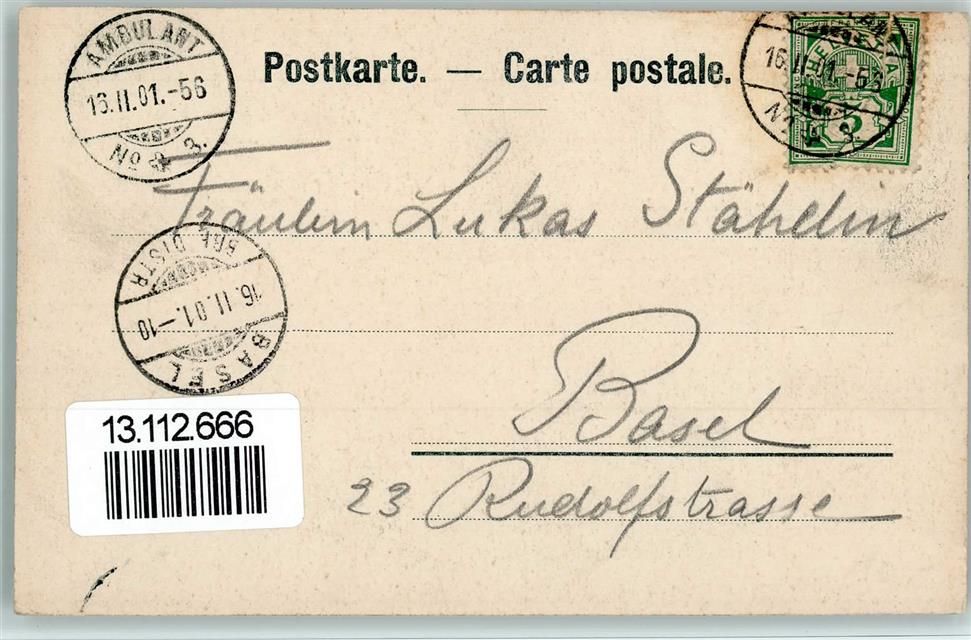 AMBULANT
16.II.01.-56
No 3.
Postkarte. — Carte postale.
AMBULANT
16.II.01.-56
No 3.
HELVETIA
5
Fräulein Lukas Stähelin
BRF. DISTR.
16.II.01.-10
BASEL
Basel
23 Rudolfstrasse
13.112.666